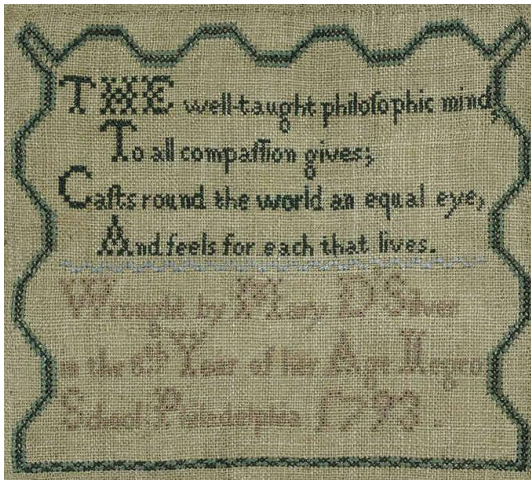 THE well-taught philoſophic mind,
To all compaſſion gives;
Caſts round the world an equal eye,
And feels for each that lives.
Wrought by Mary D Silver
in the 8th Year of her Age Negro
School Philadelphia 1793.